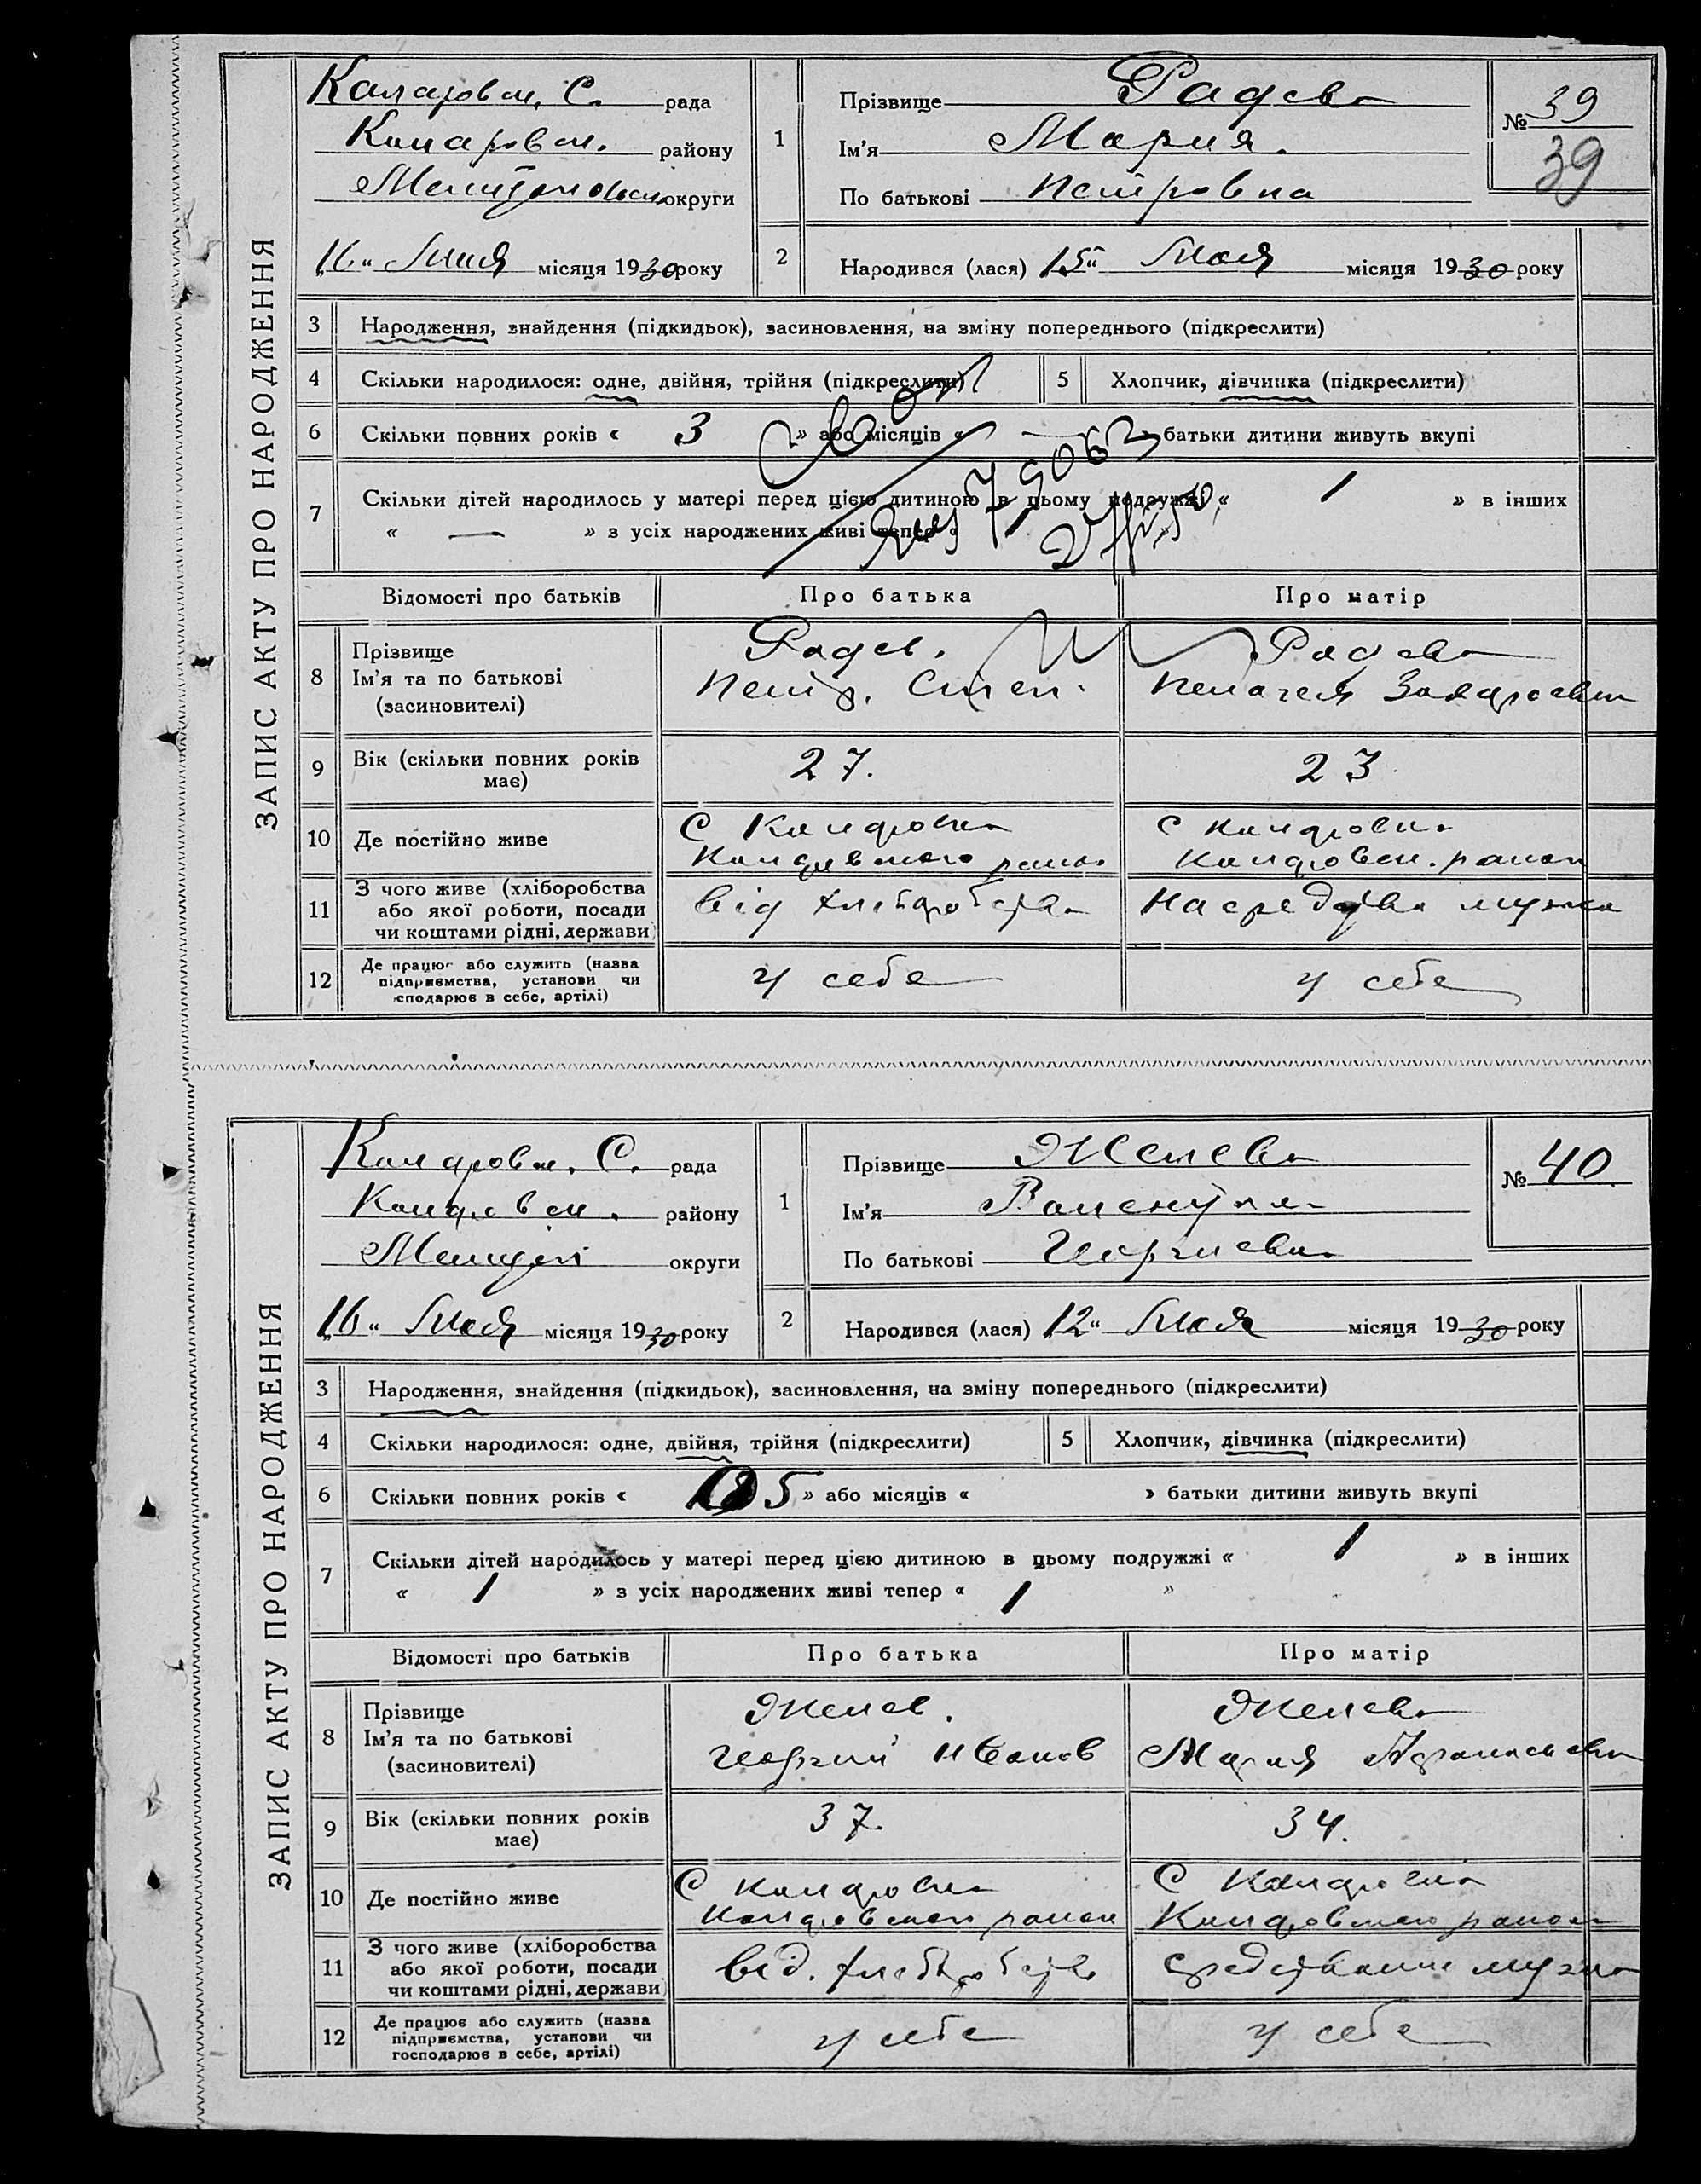 ЗАПИС АКТУ ПРО НАРОДЖЕННЯ
Коларовск. С. рада
Коларовск. району
округи
„16“ Мая місяця 1930 року
1 Прізвище Радева
Ім'я Мария.
По батькові Петровна
№ 39
39
2 Народився (лася) 15“ Мая місяця 1930 року
3 Народження, знайдення (підкидьок), засиновлення, на зміну попереднього (підкреслити)
4 Скільки народилося: одне, двійня, трійня (підкреслити) 5 Хлопчик, дівчинка (підкреслити)
6 Скільки повних років « 3 » або місяців « — » батьки дитини живуть вкупі
7 Скільки дітей народилось у матері перед цією дитиною в цьому подружжі « 1 » в інших
« — » з усіх народжених живі тепер «
Відомості про батьків Про батька Про матір
8 Прізвище Радев. Радева
Ім'я та по батькові Петр. Степ. Пелагея Захаровна
(засиновителі)
9 Вік (скільки повних років має) 27. 23
10 Де постійно живе С Коларовка С Коларовка
Коларовского район Коларовск. район
11 З чого живе (хліборобства або якої роботи, посади чи коштами рідні, держави) від хлеборобства На средства мужа
12 Де працює або служить (назва підприємства, установи чи господарює в себе, артілі) у себе у себе
ЗАПИС АКТУ ПРО НАРОДЖЕННЯ
Коларовск. С. рада
Коларовск. району
округи
„16“ Мая місяця 1930 року
1 Прізвище Желева
Ім'я Валентина
По батькові Георгиевна
№ 40.
2 Народився (лася) 12“ Мая місяця 1930 року
3 Народження, знайдення (підкидьок), засиновлення, на зміну попереднього (підкреслити)
4 Скільки народилося: одне, двійня, трійня (підкреслити) 5 Хлопчик, дівчинка (підкреслити)
6 Скільки повних років « 5 » або місяців « » батьки дитини живуть вкупі
7 Скільки дітей народилось у матері перед цією дитиною в цьому подружжі « 1 » в інших
« 1 » з усіх народжених живі тепер « 1 »
Відомості про батьків Про батька Про матір
8 Прізвище Желев. Желева
Ім'я та по батькові Георгий Иванов Мария Афанасьевна
(засиновителі)
9 Вік (скільки повних років має) 37. 34.
10 Де постійно живе С Коларовка С Коларовка
Коларовского район Коларовского район
11 З чого живе (хліборобства або якої роботи, посади чи коштами рідні, держави) від. хлеборобства средствами мужа
12 Де працює або служить (назва підприємства, установи чи господарює в себе, артілі) у себе у себе